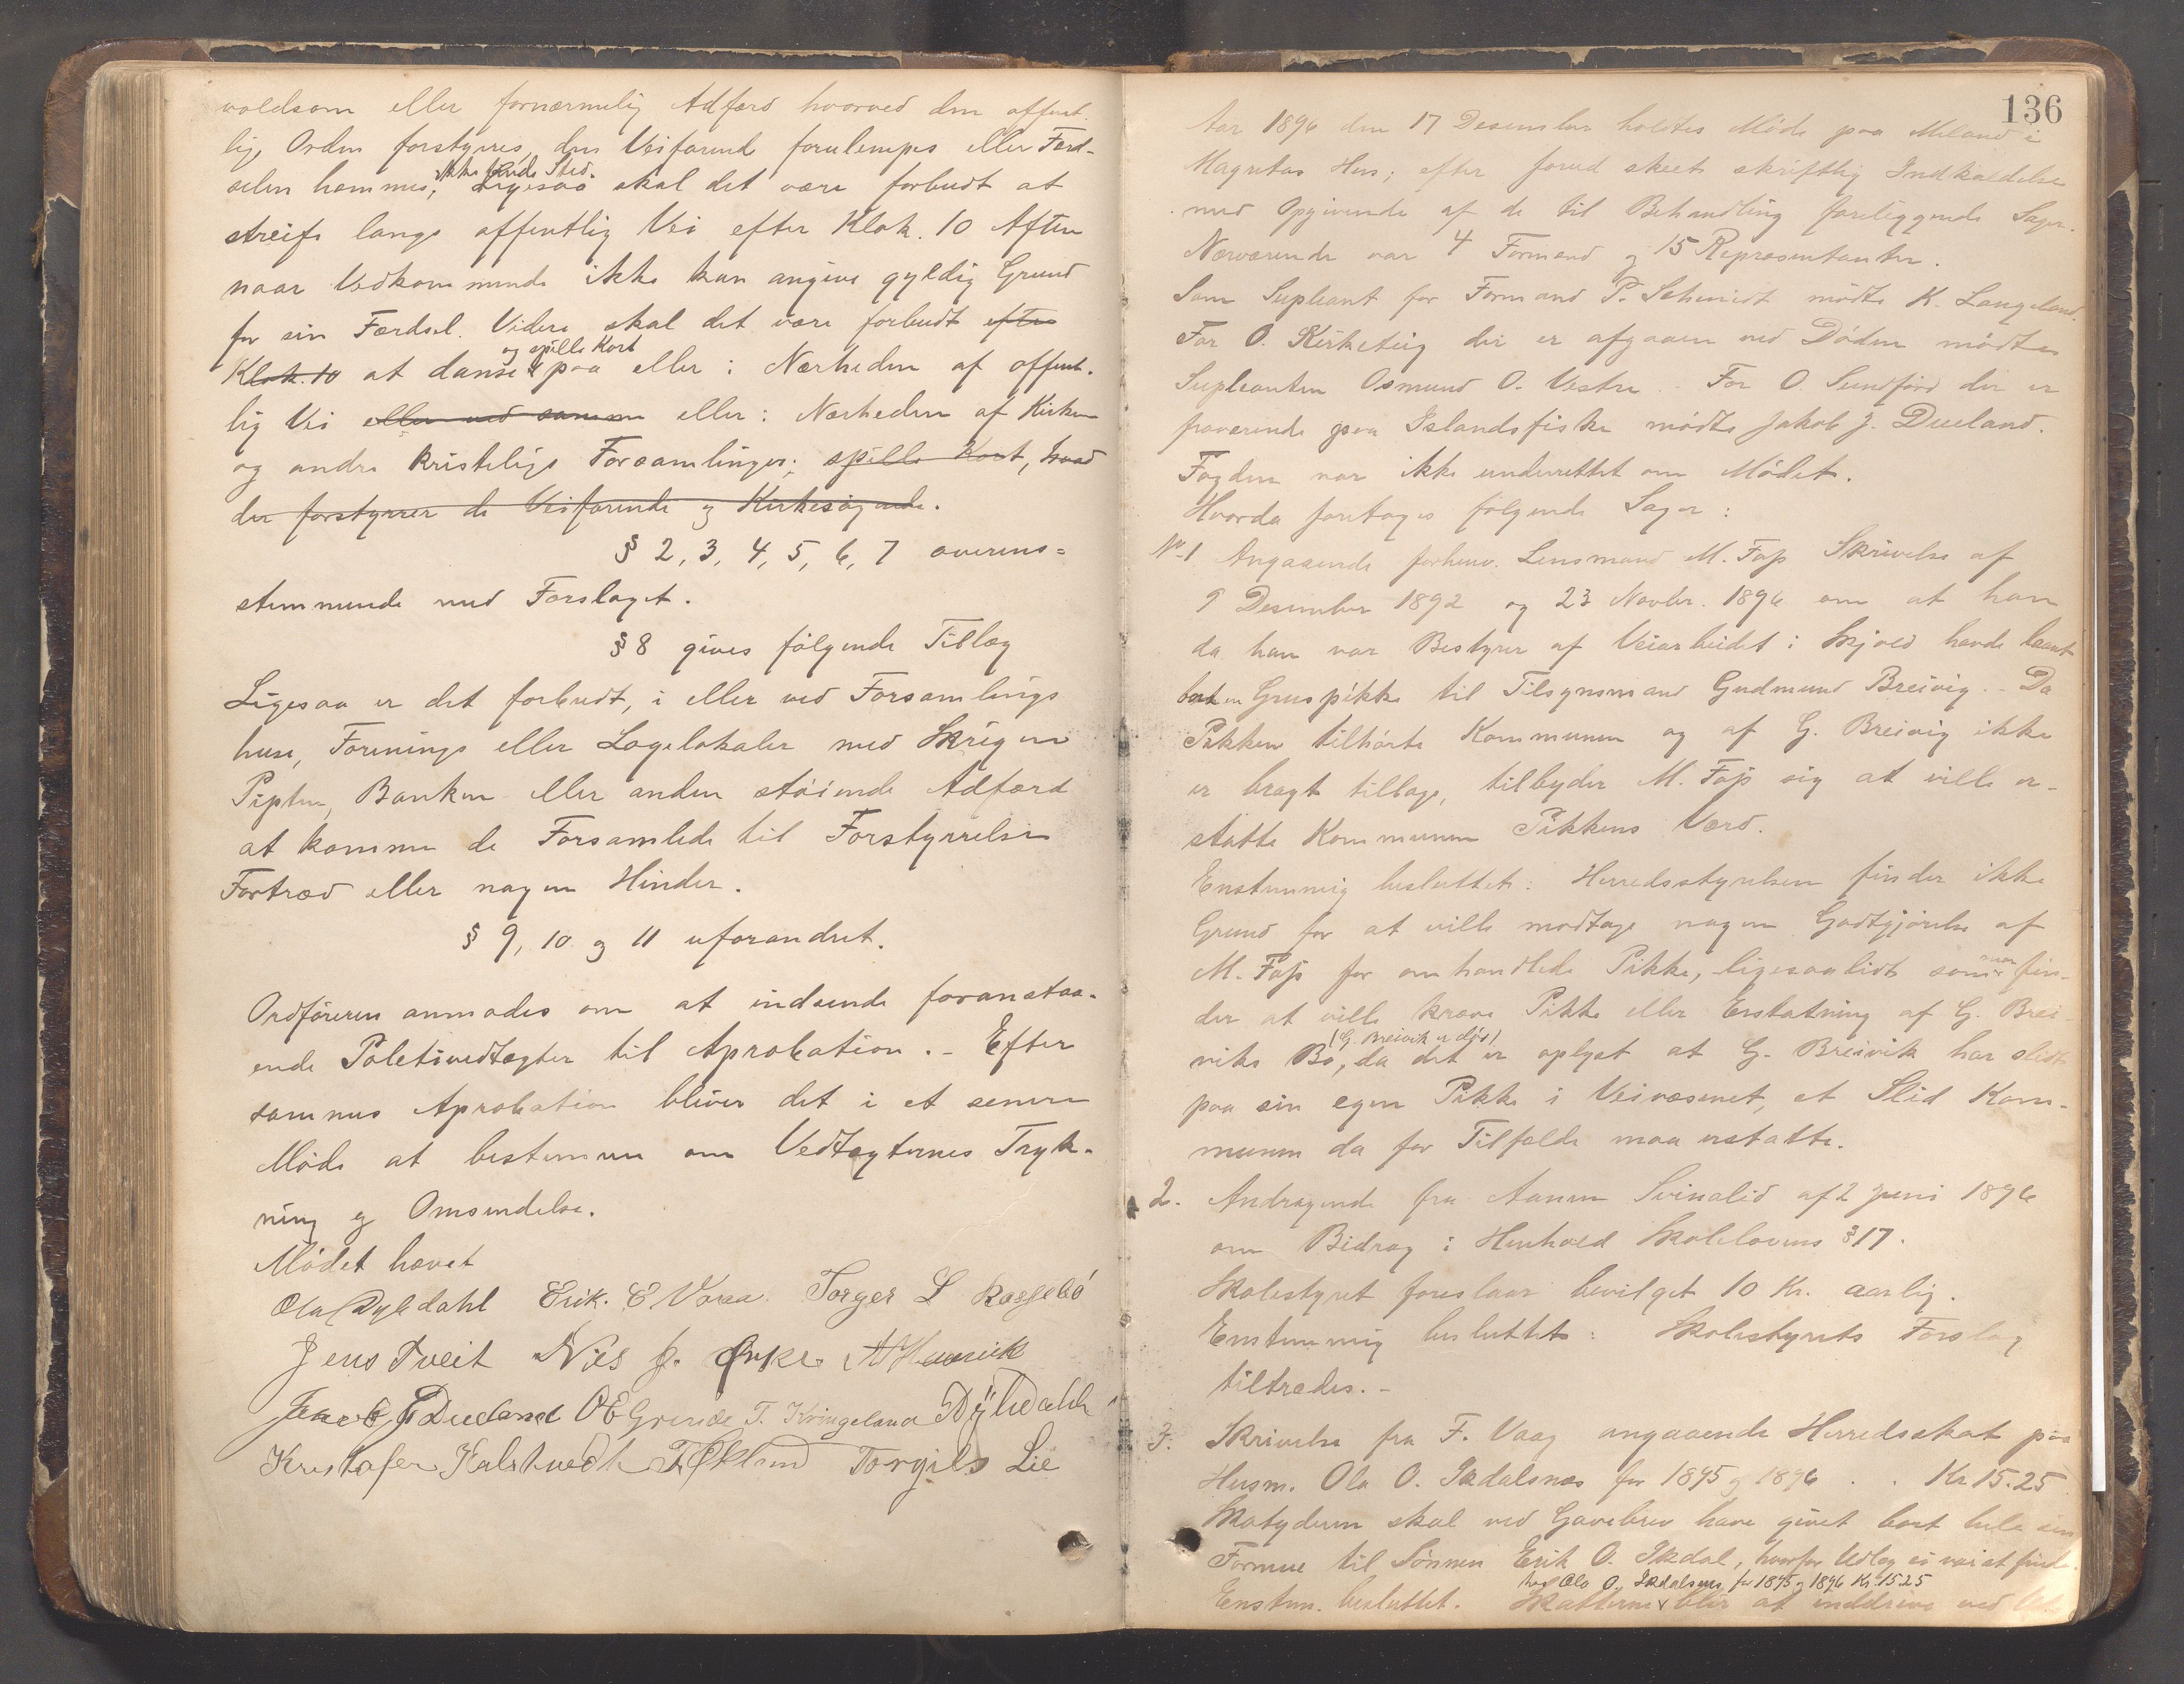 voldsom eller fornærmelig Adfærd hvorved den offent
lige Orden forstyrres, den Veifarende forulempes eller Færd-
selen hemmes, ikke finde Sted. Ligesaa skal det være forbudt at
streife langs offentlig Vei efter Klok. 10 Aften
naar Vedkommende ikke kan angive gyldig Grund
for sin Færdsel. Videre skal det være forbudt efter
Klok. 10 at danse og spille Kort paa eller i Nærheden af offent-
lig Vei eller ved samme eller i Nærheden af Kirken
og andre kristelige Forsamlinger; spille Kort, hvad
der forstyrrer de Veifarende og Kirkesøgende.
§ 2, 3, 4, 5, 6, 7 overens=
stemmende med Forslaget.
§ 8 gives følgende Tillæg
Ligesaa er det forbudt, i eller ved Forsamlings
huse, Forenings eller Logelokaler med Skrigen
Pipten, Banken eller anden støiende Adfærd
at komme de Forsamlede til Forstyrrelse
Fortræd eller nogen Hinder.
§ 9, 10 og 11 uforandret.
Ordføreren anmodes om at indsende foranstaa-
ende Poletivedtægter til Aprobation. - Efter
sammes Aprobation bliver det i et senere
Møde at bestemme om Vedtægternes Tryk-
ning og Omsendelse.
Mødet hævet
Ola Dyledahl Erik. E Voraa. Torger L
Jens Tveit Nils J. Ørke.
Jacob J Dueland O E Grinde T. Kringeland
Kristofer Kalstvedt T. Økland Torgils Lie
136
Aar 1896 den 17 Desember holdtes Møde paa Meland i
Magretas Hus; efter forud skeet skriftlig Indkaldelse
med Opgivende af de til Behandling foreliggende Sager.
Nærværende var 4 Formænd og 15 Repræsentanter.
Som Supleant for Formand P. Schmidt mødte K. Langeland.
For O. Kirketeig der er afgaaen ved Døden mødte
Supleanten Osmund O. Vestre. - For O. Sundfjord der er
fraværende paa Islandsfiske mødte Jakob J. Dueland.
Fogden var ikke underrettet om Mødet.
Hvorda foretoges følgende Sager:
No. 1 Angaaende forhenv. Lensmand M. Fajs Skrivelse af
9 Desember 1892 og 23 Novbr. 1896 om at han
da han var Bestyrer af Veiarbeidet i Skjold havde laant
bort en Gruspikke til Tilsynsmand Gudmund Breivig. - Da
Pikken tilhørte Kommunen og af G. Breivig ikke
er bragt tilbage, tilbyder M. Fajs sig at ville er-
statte Kommunen Pikkens Værd.
Enstemmig besluttet: Herredsstyrelsen finder ikke
Grund for at ville modtage nogen Godtgjørelse af
M. Fajs for omhandlede Pikke, ligesaalidt som man fin-
der at ville kræve Pikke eller Erstatning af G. Brei-
viks Bo, (G. Breivik er død) da det er oplyst at G. Breivik har slidt
paa sin egen Pikke i Veivæsenet, et Slid Kom-
munen da for Tilfælde maa erstatte.
2. Andragende fra Aanen Svinalid af 2 Juni 1896
om Bidrag i Henhold Skolelovens § 17.
Skolestyret foreslaar bevilget 10 Kr. aarlig.
Enstemmig besluttet: Skolestyrets Forslag
tiltrædes. -
3. Skrivelse fra F. Vaag angaaende Herredsskat paa
Husm. Ola O. Ikdalsnæs for 1895 og 1896 . . Kr 15.25
Skatyderen skal ved Gavebrev have givet bort hele sin
Formue til Sønnen Erik O. Ikdal, hvorfor Udlæg ei var at finde.
Enstem. besluttet. Skatterne hos Ola O. Ikdalsnæs for 1895 og 1896 Kr. 15.25 blir at inddrive ved